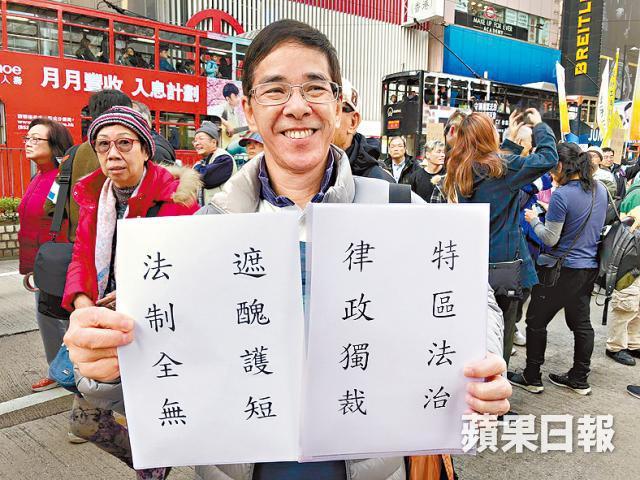 月月豐收 入息計劃
香港
MAKE UP FOR EVER
ACADEMY
BREITLING
特區法治
律政獨裁
遮醜護短
法制全無
蘋果日報